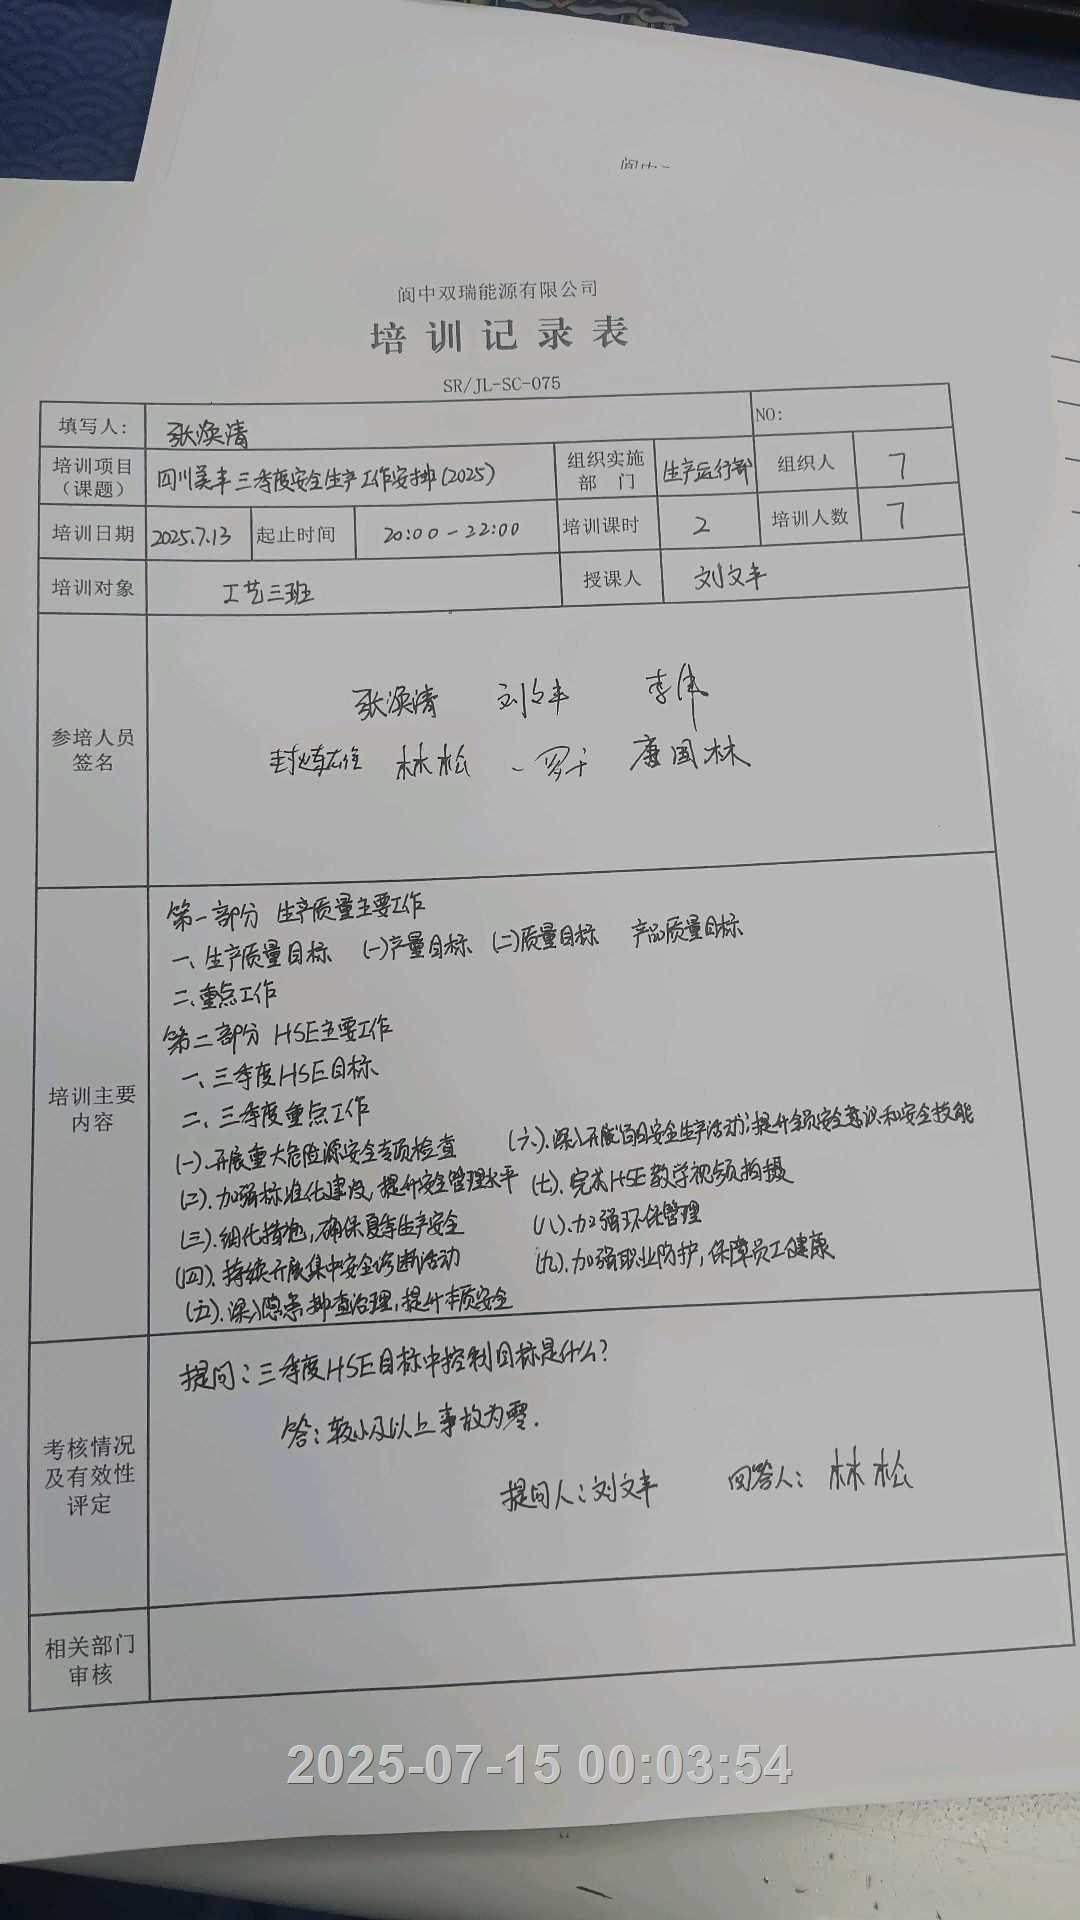 阆中双瑞能源有限公司
培训记录表
SR/JL-SC-075
填写人: 张焕清 NO:
培训项目（课题） 四川美丰三季度安全生产工作安排(2025) 组织实施部门 生产运行部 组织人 7
培训日期 2025.7.13 起止时间 20:00-22:00 培训课时 2 培训人数 7
培训对象 工艺三班 授课人 刘文丰
参培人员签名
张焕清 刘文丰 李伟
林松 罗 唐国林
培训主要内容
第一部分 生产质量主要工作
一、生产质量目标 (一)产量目标 (二)质量目标 产品质量目标
二、重点工作
第二部分 HSE主要工作
一、三季度HSE目标
二、三季度重点工作
(一).开展重大危险源安全专项检查
(二).加强标准化建设,提升安全管理水平
(三).细化措施,确保夏季生产安全
(四).持续开展集中安全诊断活动
(五).深入隐患排查治理,提升本质安全
(六).深入开展 安全生产活动;提升全员安全意识和安全技能
(七).完善HSE教学视频拍摄
(八).加强环保管理
(九).加强职业防护,保障员工健康
考核情况及有效性评定
提问:三季度HSE目标中控制目标是什么?
答:较小及以上事故为零.
提问人:刘文丰 回答人:林松
相关部门审核
2025-07-15 00:03:54